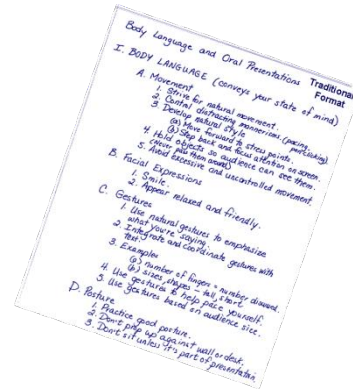 Body Language and Oral Presentations
Traditional
Format
I. BODY LANGUAGE (conveys your state of mind)
A. Movement
1. Strive for natural movement.
2. Control distracting mannerisms (pacing,
pen clicking)
3. Develop natural style
(a) Move forward to stress points.
(b) Step back and focus attention on screen.
4. Hold objects so audience can see them.
(Move pass them around)
5. Avoid excessive and uncontrolled movement.
B. Facial Expressions
1. Smile.
2. Appear relaxed and friendly.
C. Gestures
1. Use natural gestures to emphasize
what you're saying.
2. Integrate and coordinate gestures with
text.
3. Examples
(a) number of fingers = number discussed.
(b) sizes, shapes - tall, short
4. Use gestures to help pace yourself.
5. Use gestures based on audience size.
D. Posture
1. Practice good posture.
2. Don't prop up against wall or desk.
3. Don't sit unless it's part of presentation.